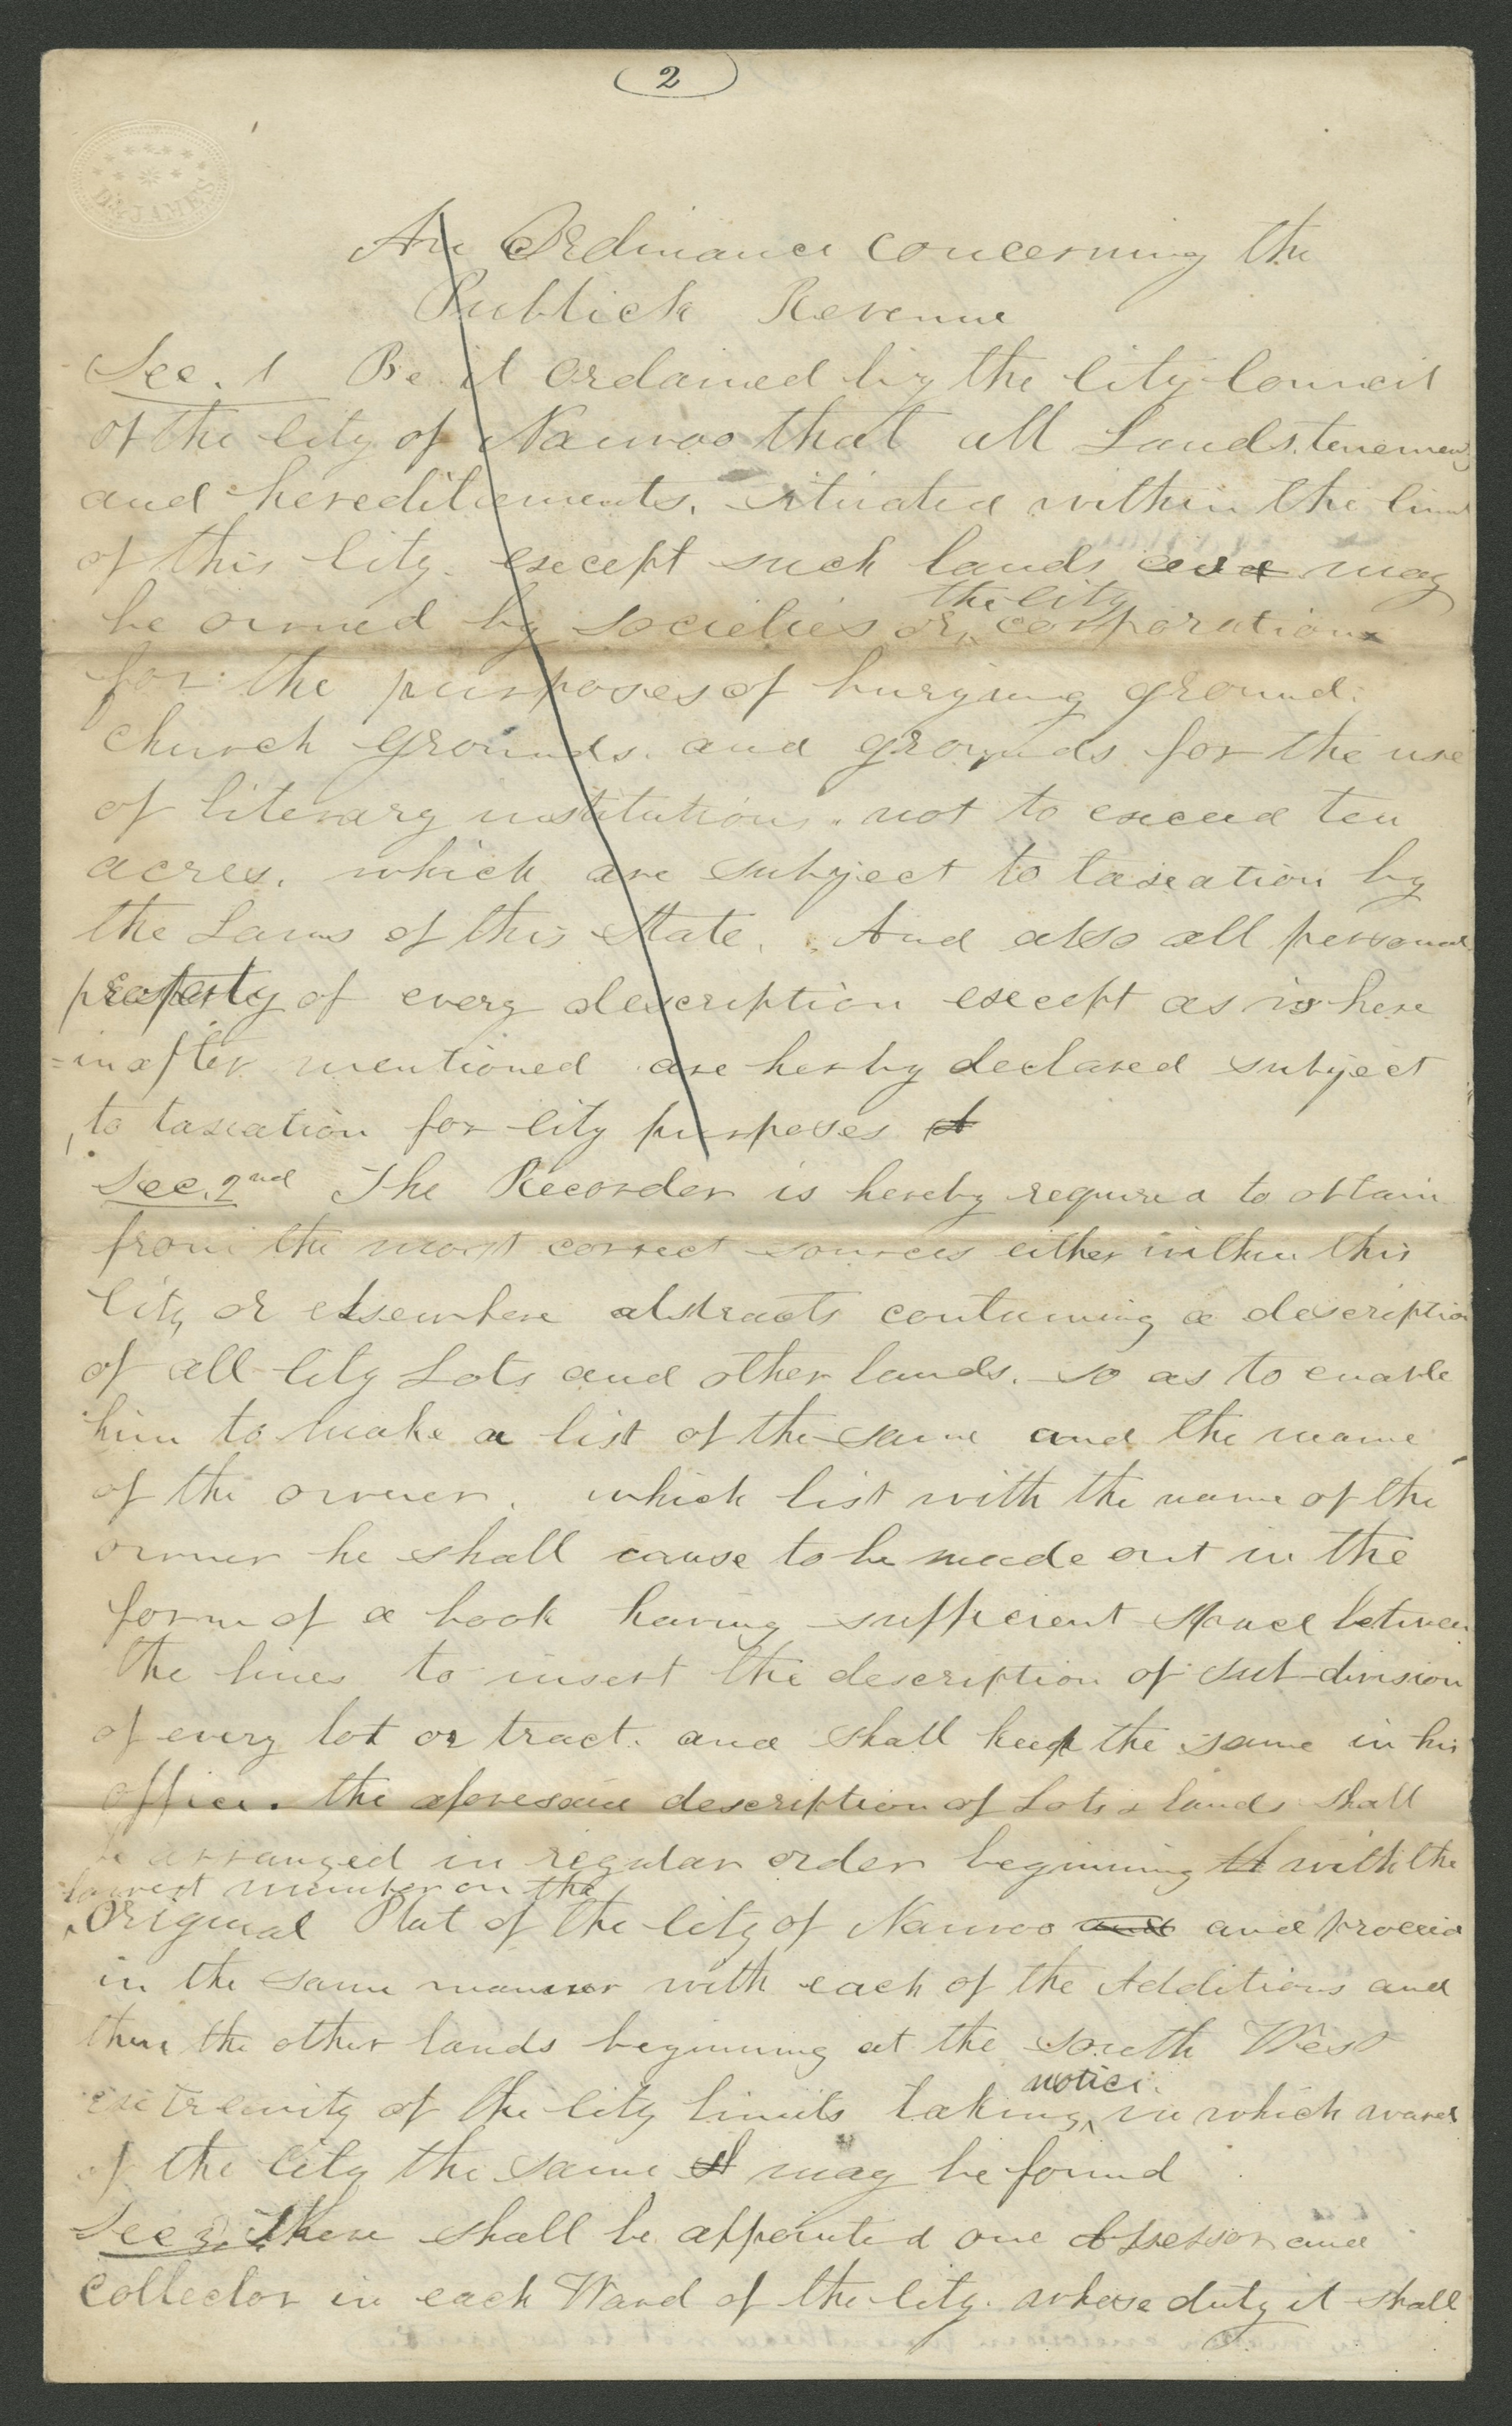 2
D & JAMES
An Ordinance concerning the
Publick Revenue
Sec. 1 Be it ordained by the City Council
of the City of Nauvoo that all Lands, tenements
and hereditiements, situated within the limits
of this City. except such lands as may
the City
be owned by societies or corporation
for the purposes of burying ground.
church grounds. and grounds for the use
of literary institutions. not to exceed ten
acres. which are subject to taxation by
the Laws of this State. And also all personal
property of every description except as is here
=inafter mentioned are herby declared subject
to taxation for City purposes
Sec. 2nd The Recorder is hereby required to obtain
from the most correct sources either within this
City or elsewhere abstracts contuining a description
of all City Lots and other lands. so as to enable
him to make a list of the same and the name
of the owner. which list with the name of the
owner he shall cause to be made out in the
form of a book having sufficient space between
the lines to insert the description of sub-division
of every lot or tract. and shall keep the same in his
office. the aforesaid description of Lots & lands shall
be arranged in regular order beginning with the
lowest number on the
original Plat of the City of Nauvoo and and proceed
in the same manner with each of the Additions and
then the other lands beginning at the South West
notice.
extremity of the City limits taking in which ward
of the City the same may be found
Sec 3. There shall be appointed one Assessor and
collector in each Ward of the City. whose duty it shall